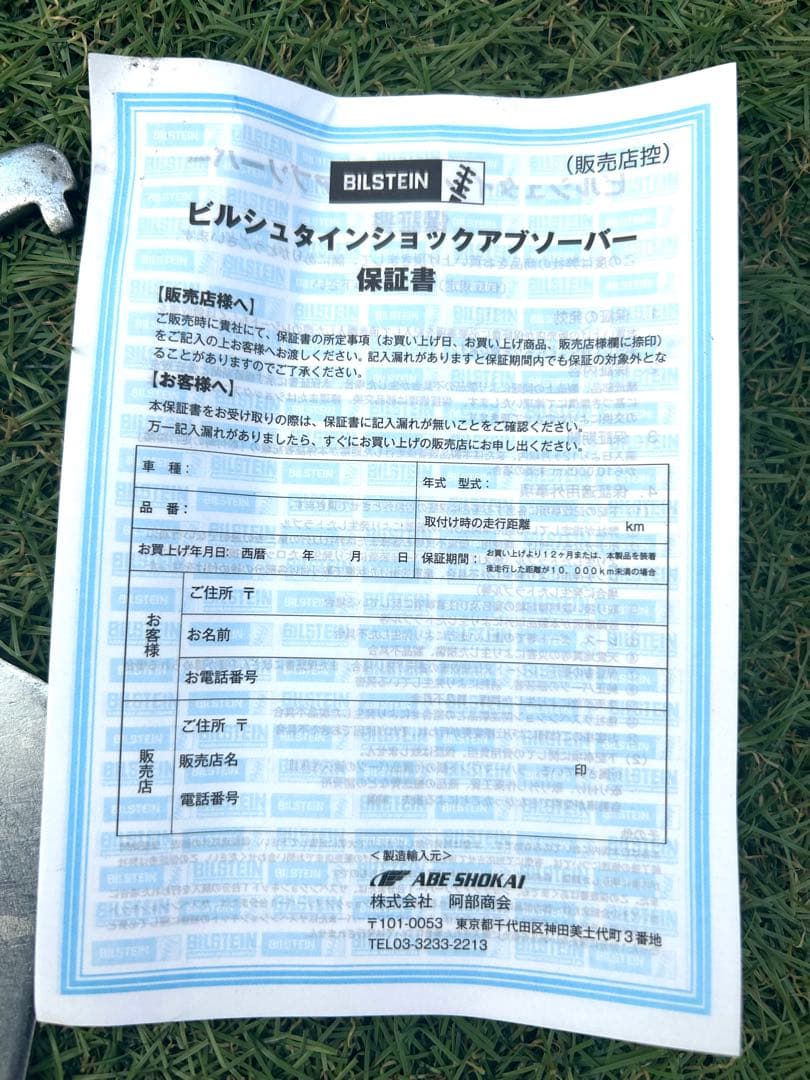 (販売店控)
BILSTEIN
ビルシュタインショックアブソーバー
保証書
【販売店様へ】
ご販売時に貴社にて、保証書の所定事項（お買い上げ日、お買い上げ商品、販売店様欄に捺印）
をご記入の上お客様へお渡しください。記入漏れがありますと保証期間内でも保証の対象外とな
ることがありますのでご了承ください。
【お客様へ】
本保証書をお受け取りの際は、保証書に記入漏れが無いことをご確認ください。
万一記入漏れがありましたら、すぐにお買い上げの販売店にお申し出ください。
車 種：
年式 型式：
品 番：
取付け時の走行距離 km
お買上げ年月日: 西暦 年 月 日
保証期間： お買い上げより１２ヶ月または、本製品を装着
後走行した距離が１０，０００ｋｍ未満の場合
お客様
ご住所 〒
お名前
お電話番号
販売店
ご住所 〒
販売店名 印
電話番号
＜製造輸入元＞
ABE SHOKAI
株式会社 阿部商会
〒101-0053 東京都千代田区神田美土代町３番地
TEL03-3233-2213